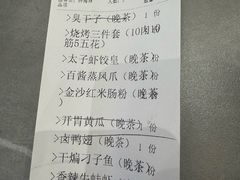 >臭干子(晚茶) 1 份
>烧烤三件套(10肉
筋5五花)
>太子虾饺皇(晚茶)
>百酱蒸凤爪(晚茶)
>金沙红米肠粉(晚茶)
>开胃黄瓜(晚茶) 份
>卤鸭翅(晚茶) 1 份
>干煸刁子鱼(晚茶)
>香辣牛蛙虾